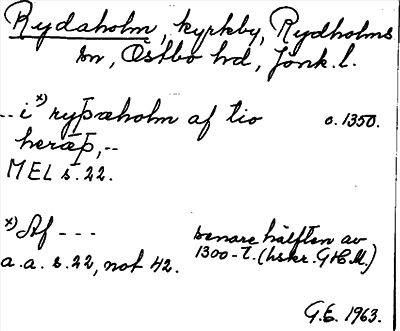 Rydaholm, kyrkby, Rydholms
sn, Östbo hd, Jönk. l.
-- i x) ryþæholm af tio c. 1350.
heræþ, --
MEL s. 22.
x) Af --- senare hälften av
a.a. s. 22, not 42. 1300-t. (hskr. G H M.)
G.E. 1963.